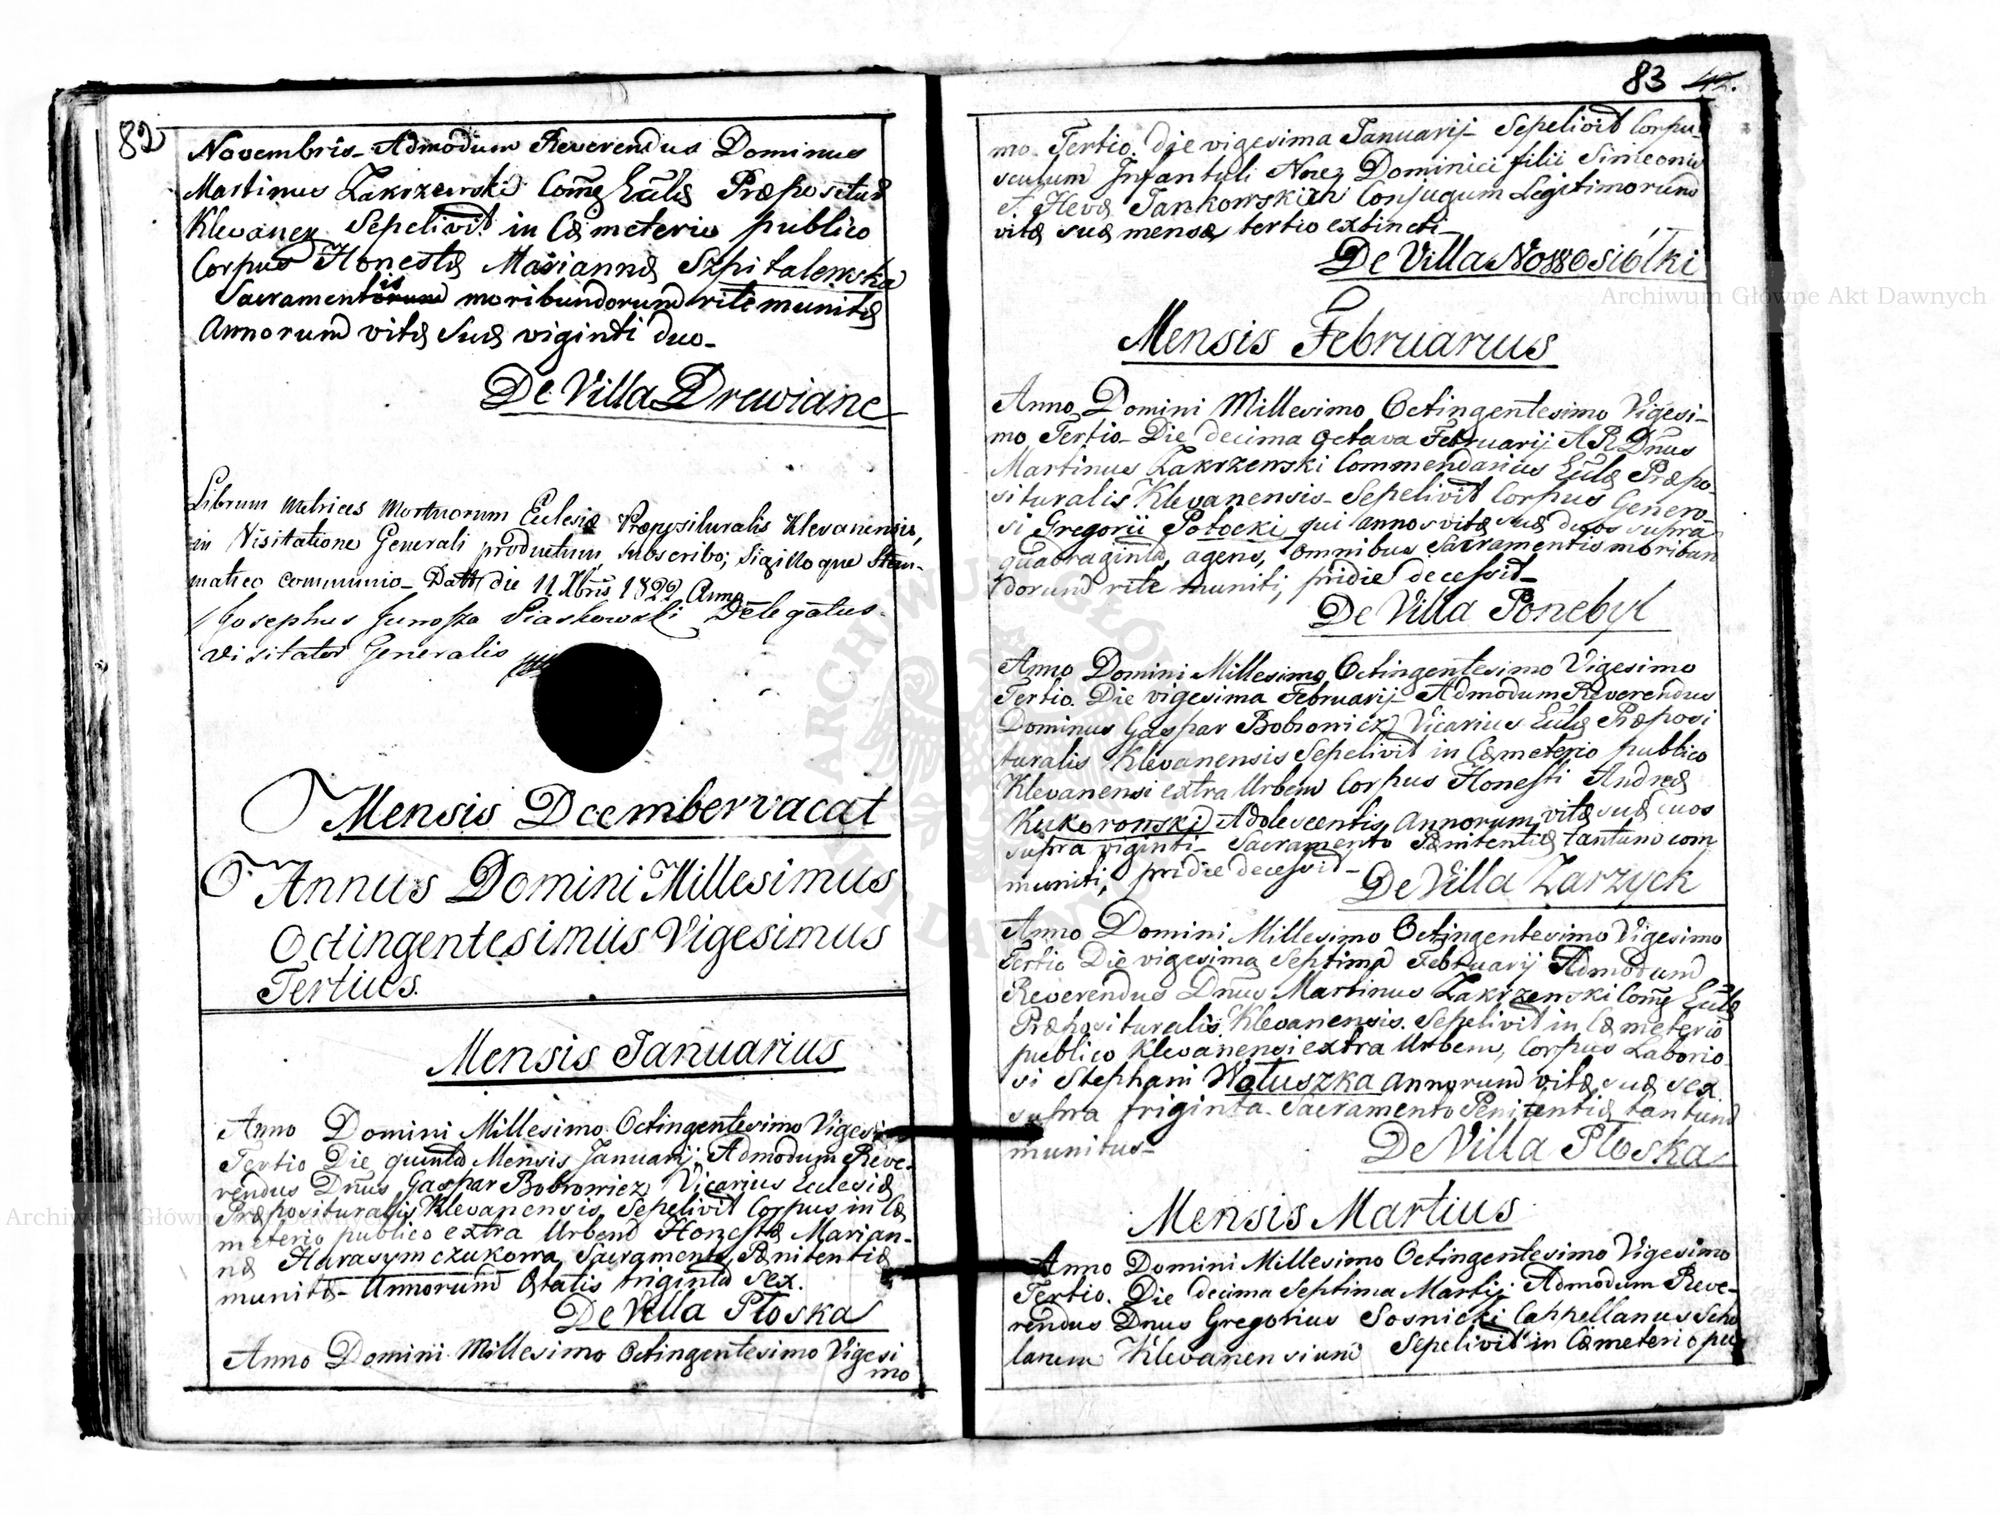 82
Novembris Admodum Reverendus Dominus
Martinus Zakrzewski Comēs Ecclæ Præpositus
Klevanen Sepelivit in Cæmeterio publico
Corpus Honestæ Mariannæ Szpitalewska
is
Sacramentorum moribundorum rite munitæ
Annorum vitæ suæ viginti duo
De Villa Drewiane
Librum Metrices Mortuorum Eclesiæ Præposituralis Klevanensis,
in Visitatione Generali productum, subscribo; Sigilloque Stem-
matico communio Datt die 11 Xbris 1822 Anno
Josephus Junosza Piaskowski Delegatus
Visitator Generalis
Mensis Dcember vacat
Annus Domini Millesimus
Octingentesimus Vigesimus
Tertius.
Mensis Januarius
Anno Domini Millesimo Octingentesimo Vigesi
Tertio Die quinta Mensis Januarij Admodum Reve-
rendus Dnus Gaspar Bobrowicz Vicarius Eclesiæ
Præposituralis Klevanensis Sepelivit Corpus in Cæ
meterio publico extra Urbem Honestæ Marian-
næ Harasymczukowa Sacramento Pænitentiæ
munitæ Annorum Ætatis triginta sex.
De Villa Ploska
Anno Domini Millesimo Octingentesimo Vigesi
mo
83 42.
mo Tertio die vigesima Januarij Sepelivit Corpu-
sculum Infantuli Dominici filii Simeonis
et Hevæ Jankowskich Conjugum Legitimorum
vitæ suæ mense tertio extincti
De Villa Nowosiółki
Mensis Februarius
Anno Domini Millesimo Octingentesimo Vigesi-
mo Tertio Die decima octava Februarij A R Dnus
Martinus Zakrzewski Commendarius Eclæ Præpo-
situralis Klevanensis Sepelivit Corpus Genero-
si Gregorii Potocki qui annos vitæ suæ duos supra
quadraginta, agens, omnibus Sacramentis moribun
dorum rite muniti, pridie decessit
De Villa Ponebyl
Anno Domini Millesimo Octingentesimo Vigesimo
Tertio. Die vigesima Februarij Admodum Reverendus
Dominus Gaspar Bobrowicz Vicarius Eclæ Præposi
turalis Klevanensis Sepelivit in Cæmeterio publico
Klevanensi extra Urbem Corpus Honesti Andreæ
Kukoronski Adolescentis Annorum vitæ suæ duos
supra viginti Sacramento Pænitentiæ tantum com
muniti, pridie decessit
De Villa Zarzyck
Anno Domini Millesimo Octingentesimo Vigesimo
Tertio Die vigesima Septima Februarij Admodum
Reverendus Dnus Martinus Zakrzewski Comē Eclæ
Præposituralis Klevanensis. Sepelivit in Cæmeterio
publico Klevanensi extra Urbem, Corpus Laborio
si Stephani Wołuszka annorum vitæ suæ sex
supra triginta Sacramento Penitentiæ tantum
munitus
De Villa Ploska
Mensis Martius
Anno Domini Millesimo Octingentesimo Vigesimo
Tertio. Die decima Septima Martij Admodum Reve-
rendus Dnus Gregorius Sosnicki Cappellanus Scho
larum Klevanensium Sepelivit in Cæmeterio pu
Archiwum Główne Akt Dawnych
Archiwum Główne Akt Dawnych
ARCHIWUM GŁÓWNE AKT DAWNYCH